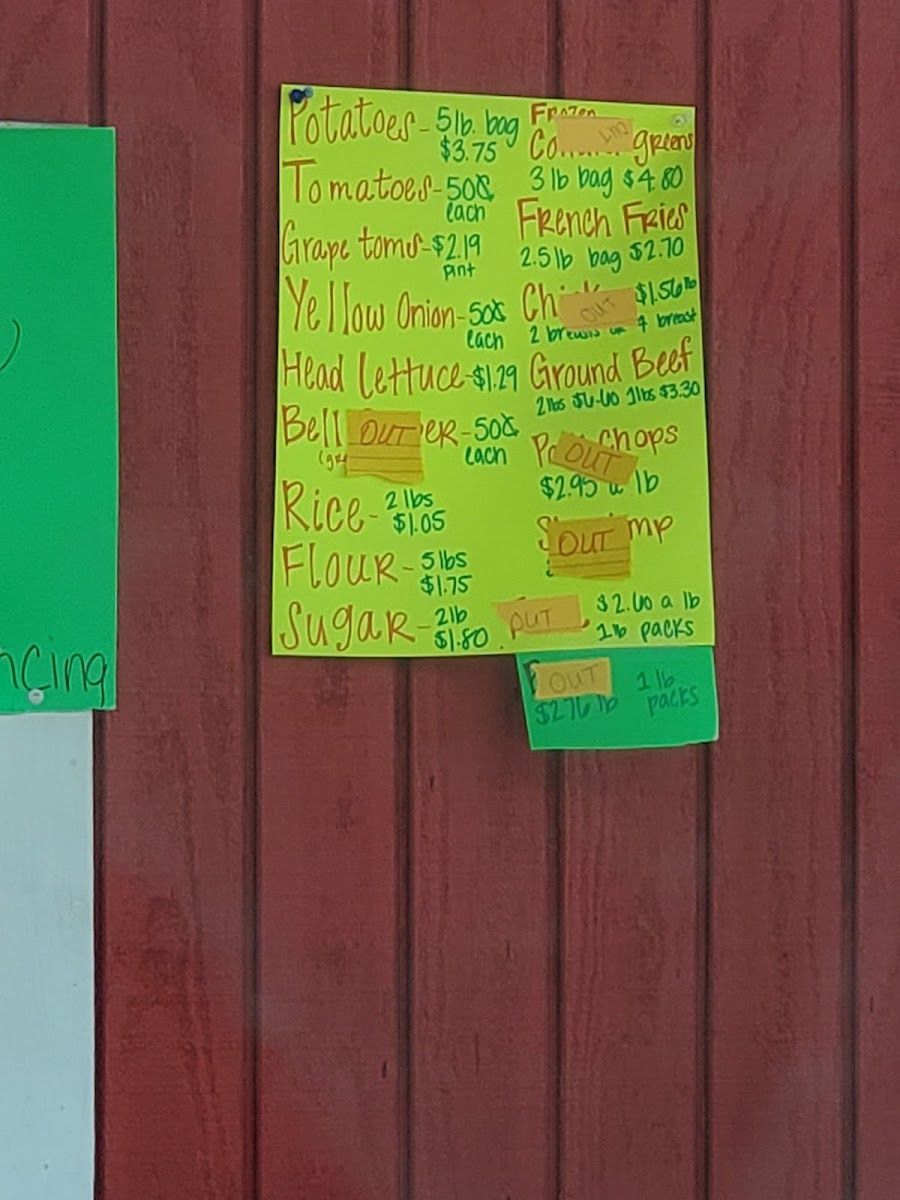 Potatoes - 5lb. bag
$3.75
Tomatoes - 50¢
each
Grape toms - $2.19
pint
Yellow Onion - 50¢
each
Head Lettuce - $1.29
Bell OUT ER - 50¢
each
Rice - 2 lbs
$1.05
Flour - 5 lbs
$1.75
Sugar - 2lb
$1.80
Frozen
OUT greens
3 lb bag $4.80
French Fries
2.5lb bag $2.70
Chi OUT $1.56 lb
2 breasts or 4 breast
Ground Beef
2lbs $6.60 1lbs $3.30
OUT Chops
$2.95 a lb
OUT mp
OUT $2.60 a lb
1lb packs
OUT 1 lb
$2.76 lb packs
ncing